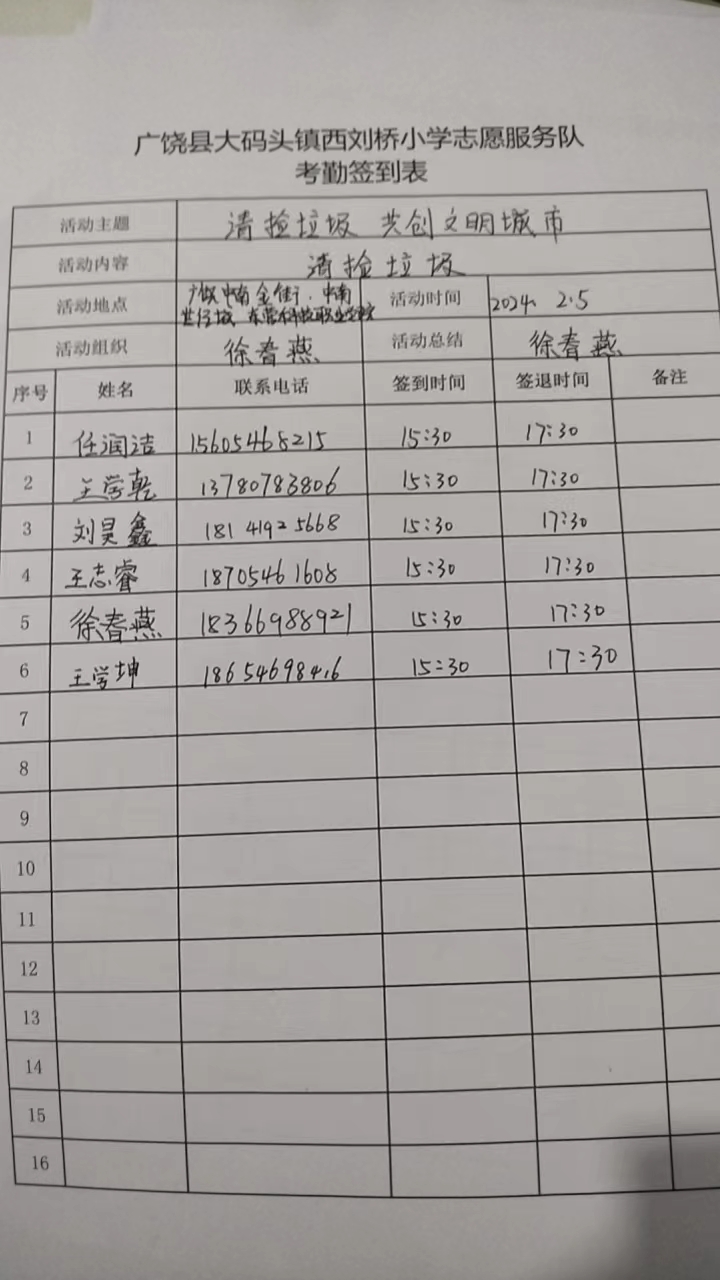 广饶县大码头镇西刘桥小学志愿服务队
考勤签到表
活动主题 清捡垃圾 共创文明城市
活动内容 清捡垃圾
活动地点 广饶中南金街.中南 活动时间 2024. 2.5
世纪城
活动组织 徐春燕 活动总结 徐春燕
序号 姓名 联系电话 签到时间 签退时间 备注
1 任润洁 15605468215 15:30 17:30
2 王学乾 13780783806 15:30 17:30
3 刘昊鑫 18141925668 15:30 17:30
4 王志睿 18705461608 15:30 17:30
5 徐春燕 18366988921 15:30 17:30
6 王学坤 15:30 17:30
7
8
9
10
11
12
13
14
15
16